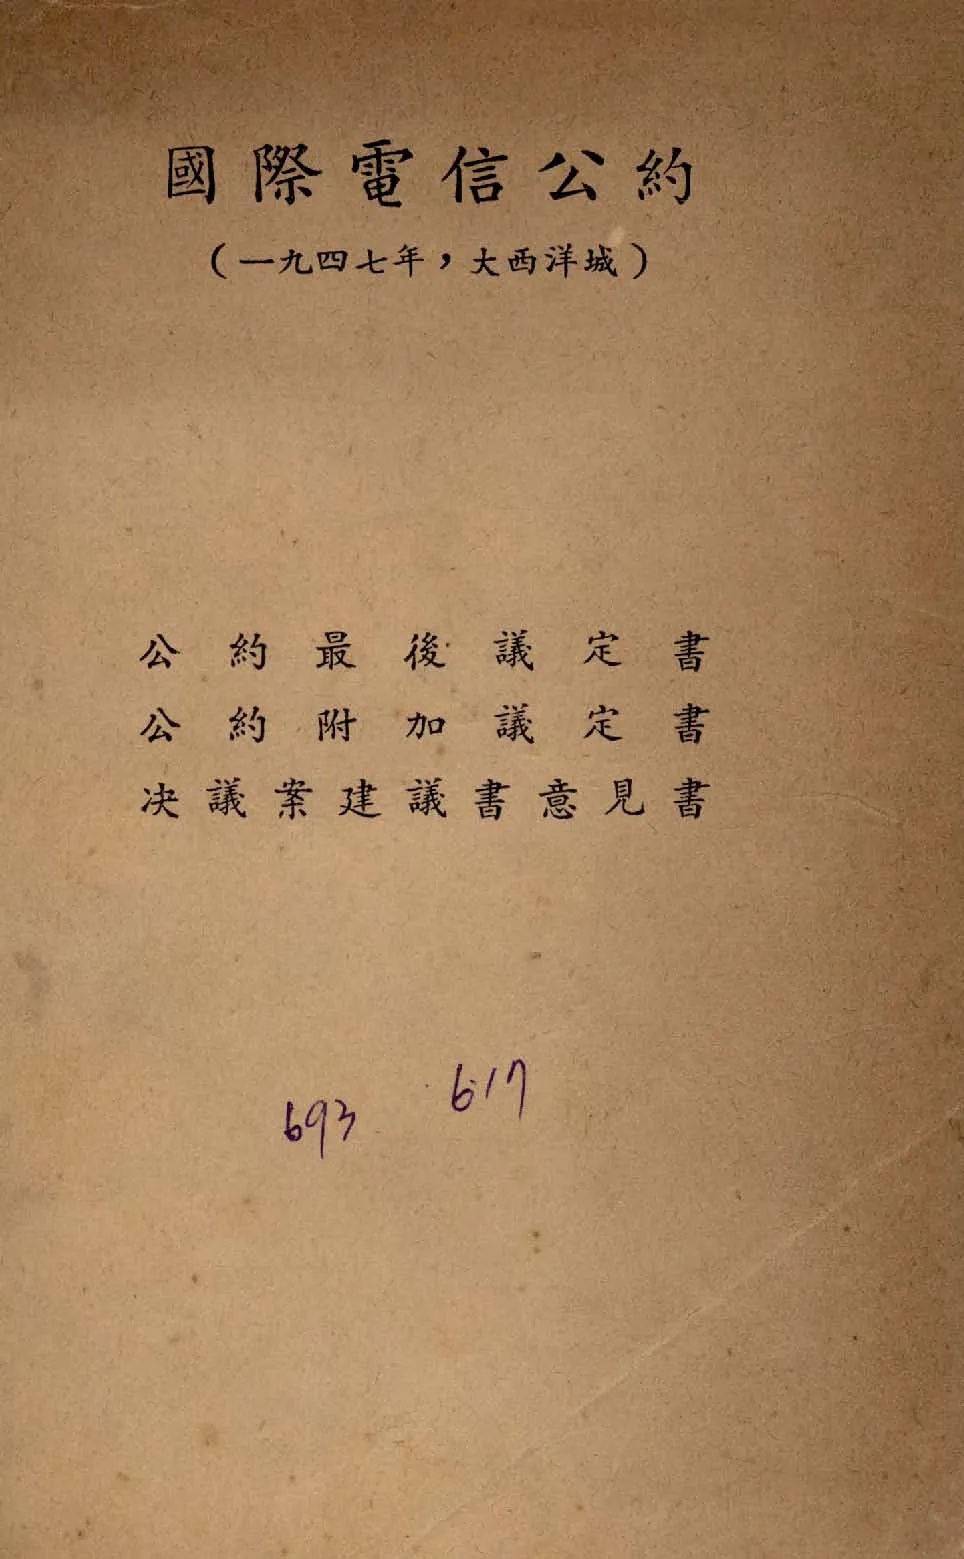 國際電信公約
（一九四七年，大西洋城）
公約最後議定書
公約附加議定書
决議案建議書意見書
693 617